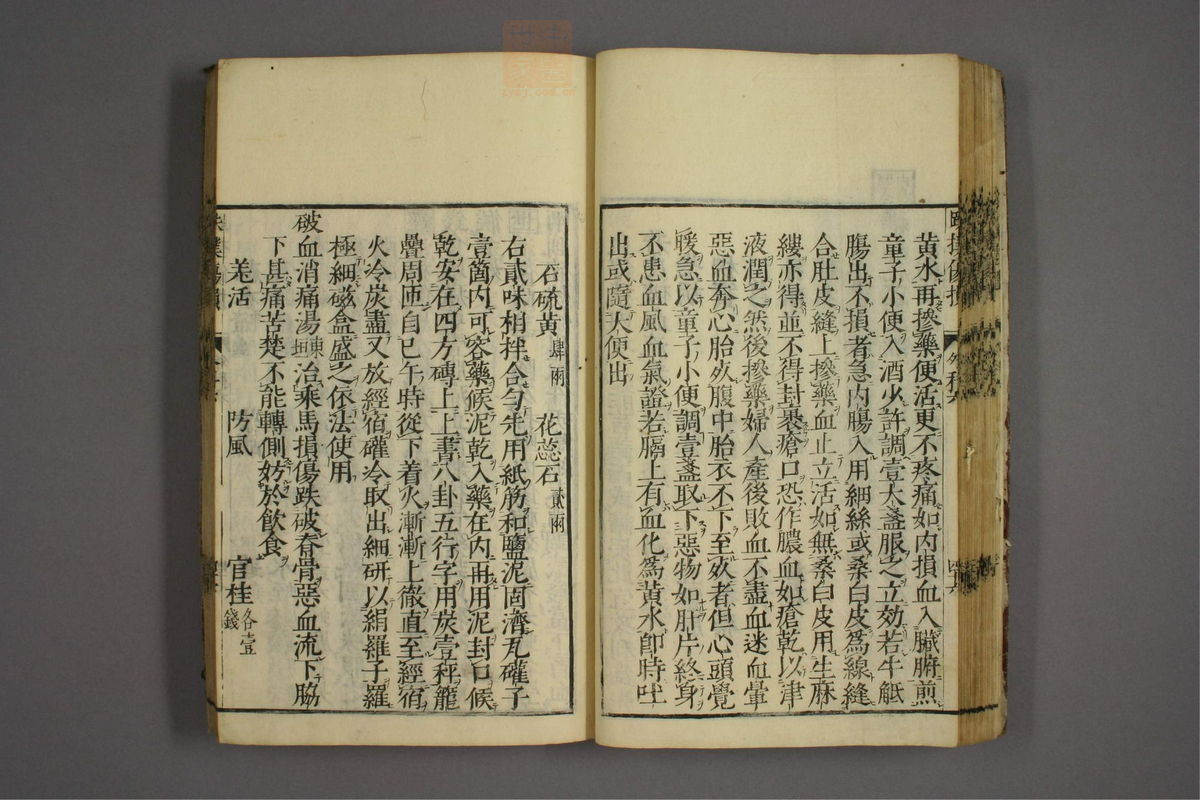 黃水再摻藥便活更不疼痛如内損血入臟腑煎
童子小便入酒少許調壹大盞服之立効若牛觝
腸出不損者急内腸入用細絲或桑白皮爲線縫
合肚皮縫上摻藥血止立活如無桑白皮用生麻
縷亦得並不得封裹瘡口恐作膿血如瘡乾以津
液潤之然後摻藥婦人產後敗血不盡血迷血暈
惡血奔心胎死腹中胎衣不下至死者但心頭覺
暖急以童子小便調壹盞取下惡物如肝片終身
不患血風血氣證若膈上有血化爲黃水卽時吐
出或隨大便出
石硫黄肆兩 花蕊石貳兩
右貳味相拌合勻先用紙筋和鹽泥固濟瓦礶子
壹箇内可容藥候泥乾入藥在内再用泥封口候
乾安在四方磚上上書八卦五行字用炭壹秤籠
疊周匝自巳午時從下着火漸漸上徹直至經宿
火冷炭盡又放經宿礶冷取出細研以絹羅子羅
極細磁盒盛之依法使用
破血消痛湯垣東治乘馬損傷跌破脊骨惡血流下脇
下甚痛苦楚不能轉側妨於飲食
羌活 防風 官桂各壹錢